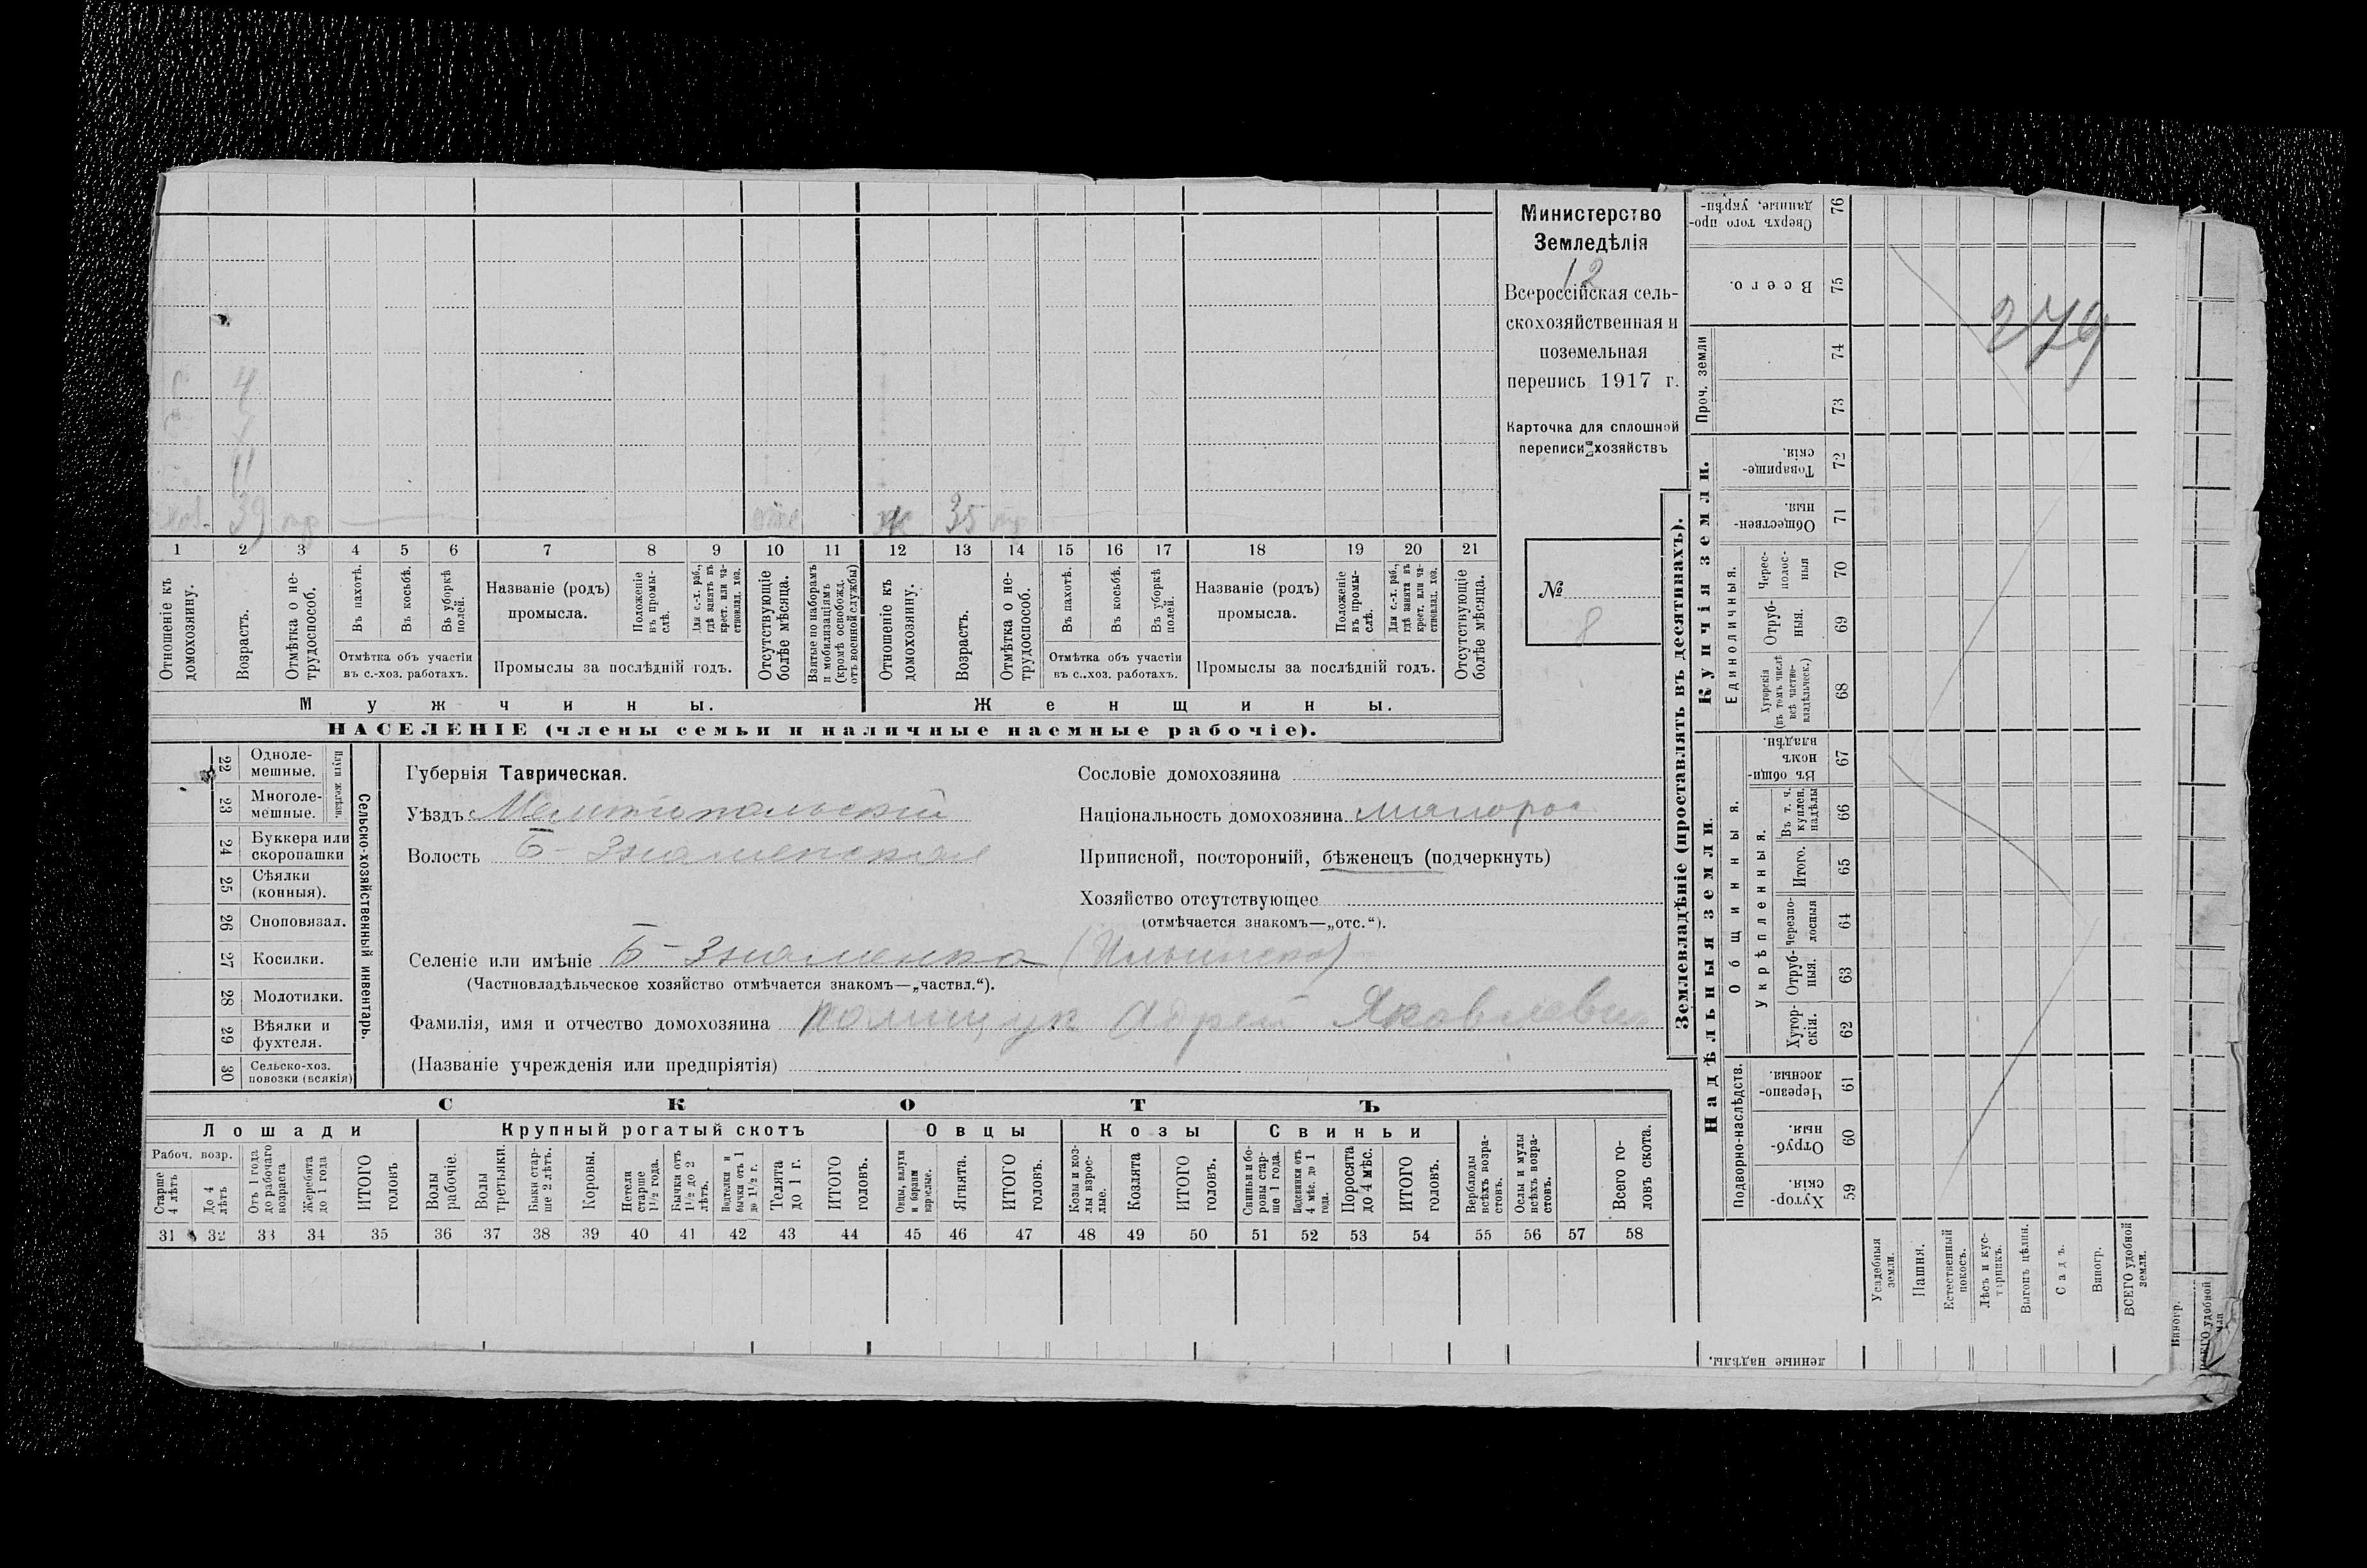 Министерство
Земледѣлія
12
Всероссійская сель-
скохозяйственная и
поземельная
перепись 1917 г.
Карточка для сплошной
переписи хозяйствъ
№
8
4
11
39
ж 35
1 2 3 4 5 6 7 8 9 10 11 12 13 14 15 16 17 18 19 20 21
Отношеніе къ домохозяину.
Возрастъ.
Отмѣтка о не-трудоспособ.
Въ пахотѣ.
Въ косьбѣ.
Въ уборкѣ полей.
Отмѣтка объ участіи
въ с.-хоз. работахъ.
Названіе (родъ)
промысла.
Положеніе въ промы-слѣ.
Для с.-х. раб., гдѣ занятъ въ крест. или ча-стновлад. хоз.
Промыслы за послѣдній годъ.
Отсутствующіе болѣе мѣсяца.
Взятые по наборамъ и мобилизаціямъ (кромѣ освобожд. отъ военной службы)
Отношеніе къ домохозяину.
Возрастъ.
Отмѣтка о не-трудоспособ.
Въ пахотѣ.
Въ косьбѣ.
Въ уборкѣ полей.
Отмѣтка объ участіи
въ с..хоз. работахъ.
Названіе (родъ)
промысла.
Положеніе въ промы-слѣ.
Для с.-х. раб., гдѣ занята въ крест. или ча-стновлад. хоз.
Промыслы за послѣдній годъ.
Отсутствующіе болѣе мѣсяца.
Мужчины.
Женщины.
НАСЕЛЕНІЕ (члены семьи и наличные наемные рабочіе).
22 Одноле-мешные.
23 Многоле-мешные.
Плуги желѣзн.
24 Буккера или скоропашки
25 Сѣялки (конныя).
26 Сноповязал.
27 Косилки.
28 Молотилки.
29 Вѣялки и фухтеля.
30 Сельско-хоз. повозки (всякія)
Сельско-хозяйственный инвентарь.
Губернія Таврическая.
Уѣздъ Мелитопольскій
Волость Б-Знаменская
Селеніе или имѣніе Б-Знаменка (Ильинско)
(Частновладѣльческое хозяйство отмѣчается знакомъ—„частвл.“).
Фамилія, имя и отчество домохозяина Полищук Адрей Яковлевич
(Названіе учрежденія или предпріятія)
Сословіе домохозяина
Національность домохозяина малорос
Приписной, посторонній, бѣженецъ (подчеркнуть)
Хозяйство отсутствующее
(отмѣчается знакомъ—„отс.“).
СКОТЪ
Лошади
Крупный рогатый скотъ
Овцы
Козы
Свиньи
Рабоч. возр.
Старше 4 лѣтъ
До 4 лѣтъ
Отъ 1 года до рабочаго возраста
Жеребята до 1 года
ИТОГО головъ
Волы рабочіе.
Волы третьяки.
Быки стар-ше 2 лѣтъ.
Коровы.
Нетели старше 1½ года.
Бычки отъ 1½ до 2 лѣтъ.
бычки отъ 1 до 1½ г.
Телята до 1 г.
ИТОГО головъ.
Овцы, валухи и бараны взрослые.
Ягнята.
ИТОГО головъ.
Козы и коз-лы взрос-лые.
Козлята
ИТОГО головъ.
Свиньи и бо-ровы стар-ше 1 года.
Подсвинки отъ 4 мѣс. до 1 года.
Поросята до 4 мѣс.
ИТОГО головъ.
Верблюды всѣхъ возра-стовъ.
Ослы и мулы всѣхъ возра-стовъ.
Всего го-ловъ скота.
31 32 33 34 35 36 37 38 39 40 41 42 43 44 45 46 47 48 49 50 51 52 53 54 55 56 57 58
Землевладѣніе (проставлять въ десятинахъ).
279
Сверхъ того про-данные, укрѣп-
76
Всего.
75
Проч. земли
74
73
Купчія земли.
Товарище-скія.
72
Обществен-ныя.
71
Единоличныя.
Черес-полос-ныя
70
Отруб-ныя.
69
Хуторскія (въ томъ числѣ всѣ частно-владѣльческ.)
68
Надѣльныя земли.
Общинныя.
Въ общи-номъ владѣн.
67
Укрѣпленныя.
Въ т. ч. куплен. надѣлы
66
Итого.
65
Черезпо-лосныя
64
Отруб-ныя.
63
Хутор-скія.
62
Подворно-наслѣдств.
Черезпо-лосныя.
61
Отруб-ныя.
60
Хутор-скія.
59
Усадебныя земли.
Пашня.
Естественный покосъ.
Лѣсъ и кус-тарникъ.
Выгонъ цѣлин.
Садъ.
Виногр.
ВСЕГО удобной земли.
денные надѣлы.
Виногр.
ВСЕГО удобной